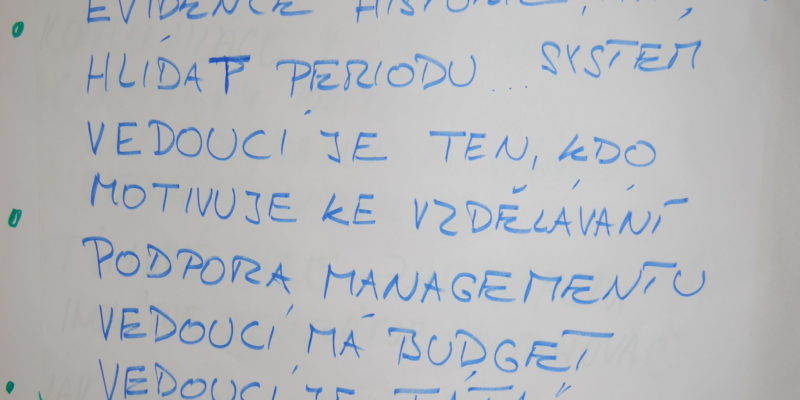 EVIDENCE HISTORIE,
HLÍDAT PERIODU ... SYSTÉM
VEDOUCÍ JE TEN, KDO
MOTIVUJE KE VZDĚLÁVÁNÍ
PODPORA MANAGEMENTU
VEDOUCÍ MÁ BUDGET
VEDOUCÍ JE